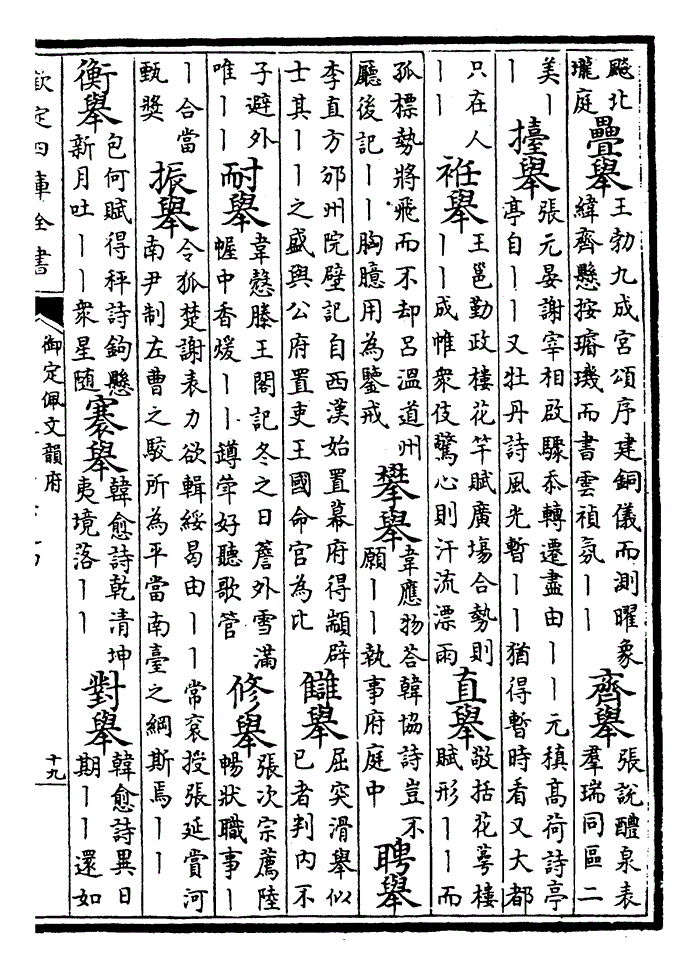 飈北瓏庭 疊舉 王勃九成宮頌序建銅儀而測曜象緯齊懸按璿璣而書雲禎氛丨丨 齊舉 張說醴泉表羣瑞同區二
美丨丨 擡舉 張元晏謝宰相啟驟忝轉遷盡由丨丨元稹高荷詩亭亭自丨丨又牡丹詩風光暫丨丨猶得暫時看又大都
只在人丨丨 袵舉 王邕勤政樓花竿賦廣場合勢則丨丨成帷衆伎驚心則汗流漂雨 直舉 敬括花萼樓賦形丨丨而
孤標勢將飛而不却呂溫道州廳後記丨丨胸臆用為鑒戒 攀舉 韋應物答韓協詩豈不願丨丨執事府庭中 聘舉
李直方邠州院壁記自西漢始置幕府得顓辟士其丨丨之盛與公府置吏王國命官為比 讎舉 屈突滑舉似已者判內不
子避外唯丨丨 耐舉 韋慤滕王閣記冬之日簷外雪滿幄中香煖丨丨罇筝好聽歌管 修舉 張次宗薦陸暢狀職事丨
丨合當甄奬 振舉 令狐楚謝表力欲輯綏曷由丨丨常衮授張延賞河南尹制左曹之駮所為平當南臺之綱斯焉丨丨
衡舉 包何賦得秤詩鉤懸新月吐丨丨衆星随 褰舉 韓愈詩乾清坤夷境落丨丨 對舉 韓愈詩異日期丨丨還如
欽定四庫全書
御定佩文韻府
十九